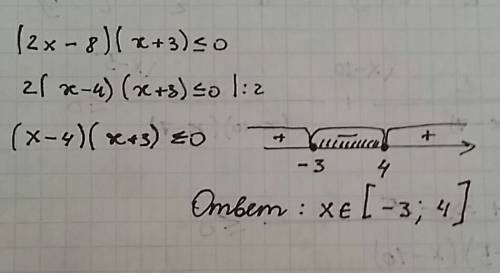 (2x-8)(x+3)≤0
2(x-4)(x+3)≤0 |:2
(x-4)(x+3)≤0
+ - +
-3 4
Ответ: x∈[-3; 4]